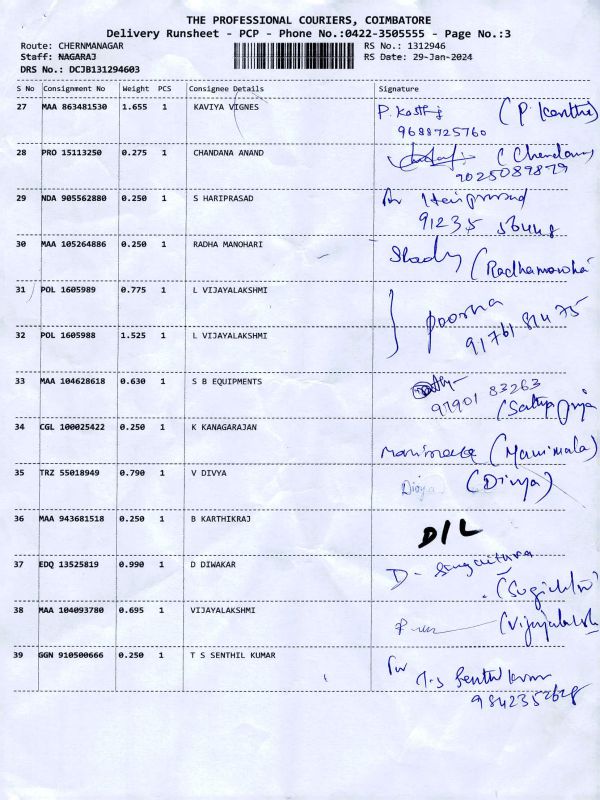 THE PROFESSIONAL COURIERS, COIMBATORE
Delivery Runsheet - PCP - Phone No.:0422-3505555 - Page No.:3
Route: CHERNMANAGAR RS No.: 1312946
Staff: NAGARAJ RS Date: 29-Jan-2024
DRS No.: DCJB131294603
S No Consignment No Weight PCS Consignee Details Signature
27 MAA 863481530 1.655 1 KAVIYA VIGNES P. (P. Kanthi)
9688725760
28 PRO 15113250 0.275 1 CHANDANA ANAND (Chandana
7025087879
29 NDA 905562880 0.250 1 S HARIPRASAD Hariprasad
91235
30 MAA 105264886 0.250 1 RADHA MANOHARI
(Radhamanohá
31 POL 1605989 0.775 1 L VIJAYALAKSHMI Poorna
32 POL 1605988 1.525 1 L VIJAYALAKSHMI 91761 81475
33 MAA 104628618 0.630 1 S B EQUIPMENTS
97901 83263
(Sathya
34 CGL 100025422 0.250 1 K KANAGARAJAN Manimala (Manimala)
35 TRZ 55018949 0.790 1 V DIVYA Divya (Divya)
36 MAA 943681518 0.250 1 B KARTHIKRAJ D/L
37 EDQ 13525819 0.990 1 D DIWAKAR D-
38 MAA 104093780 0.695 1 VIJAYALAKSHMI (Vijayalaksh
39 GGN 910500666 0.250 1 T S SENTHIL KUMAR for T.S Senthil kumar
9842352628